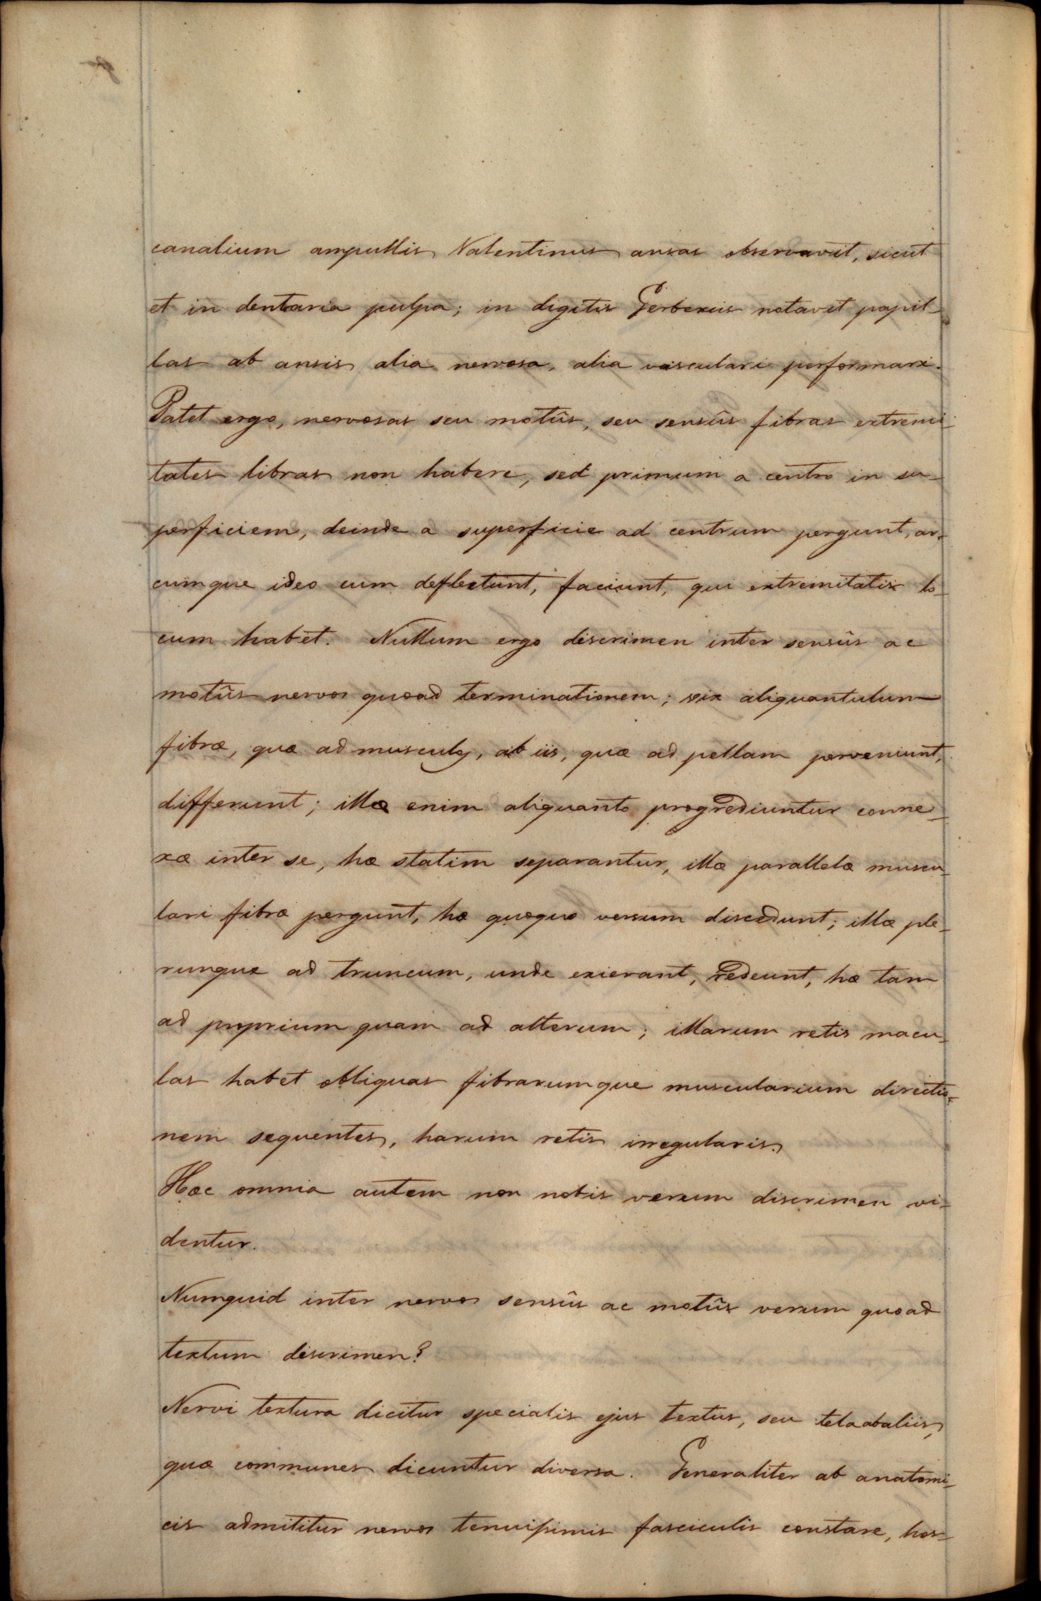 canalium ampullis Valentinus ansas observavit, sicut
et in dentaria pulpa; in digitis Gerberius notavit papil-
las ab ansis alia nervosa, alia vasculari performari.
Patet ergo, nervosas seu motûs, seu sensûs fibras extremi-
tates libras non habere, sed primum a centro in su-
perficiem, deinde a superficie ad centrum pergunt, ar-
cumque ideo cum deflectunt, faciunt, qui extremitatis lo-
cum habet. Nullum ergo discrimen inter sensûs ac
motûs nervos quoad terminationem; vix aliquantulum
fibræ, quæ ad musculos, ab iis, quæ ad pellam perveniunt,
differunt; illæ enim aliquanto progrediuntur conne-
xæ inter se, hæ statim separantur, illæ parallelæ muscu-
lari fibræ pergunt, hæ quoquo versum discedunt; illæ ple-
rumque ad truncum, unde exierant, redeunt, hæ tam
ad proprium quam ad alterum; illarum retis macu-
las habet obliquas fibrarumque muscularium directio-
nem sequentes, harum retis irregularis.
Hæc omnia autem non nobis verum discrimen vi-
dentur.
Numquid inter nervos sensûs ac motûs verum quoad
textum discrimen?
Nervi textura dicitur specialis ejus textus, seu tela ab aliis,
quæ communes dicuntur diversa. Generaliter ab anatomi-
cis admititur nervos tenuissimis fasciculis constare, hos-